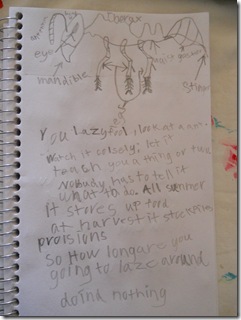 Thorax
eye
mandible
Stinger
leg
You Lazy fool, look at a ant.
Watch it colsely; let it
teach you a thing or two
Nobody has to tell it
what to do. All summer
it stores up food
at harvest it stockpiles
proisions
so How long are you
going to laze around
doind nothing